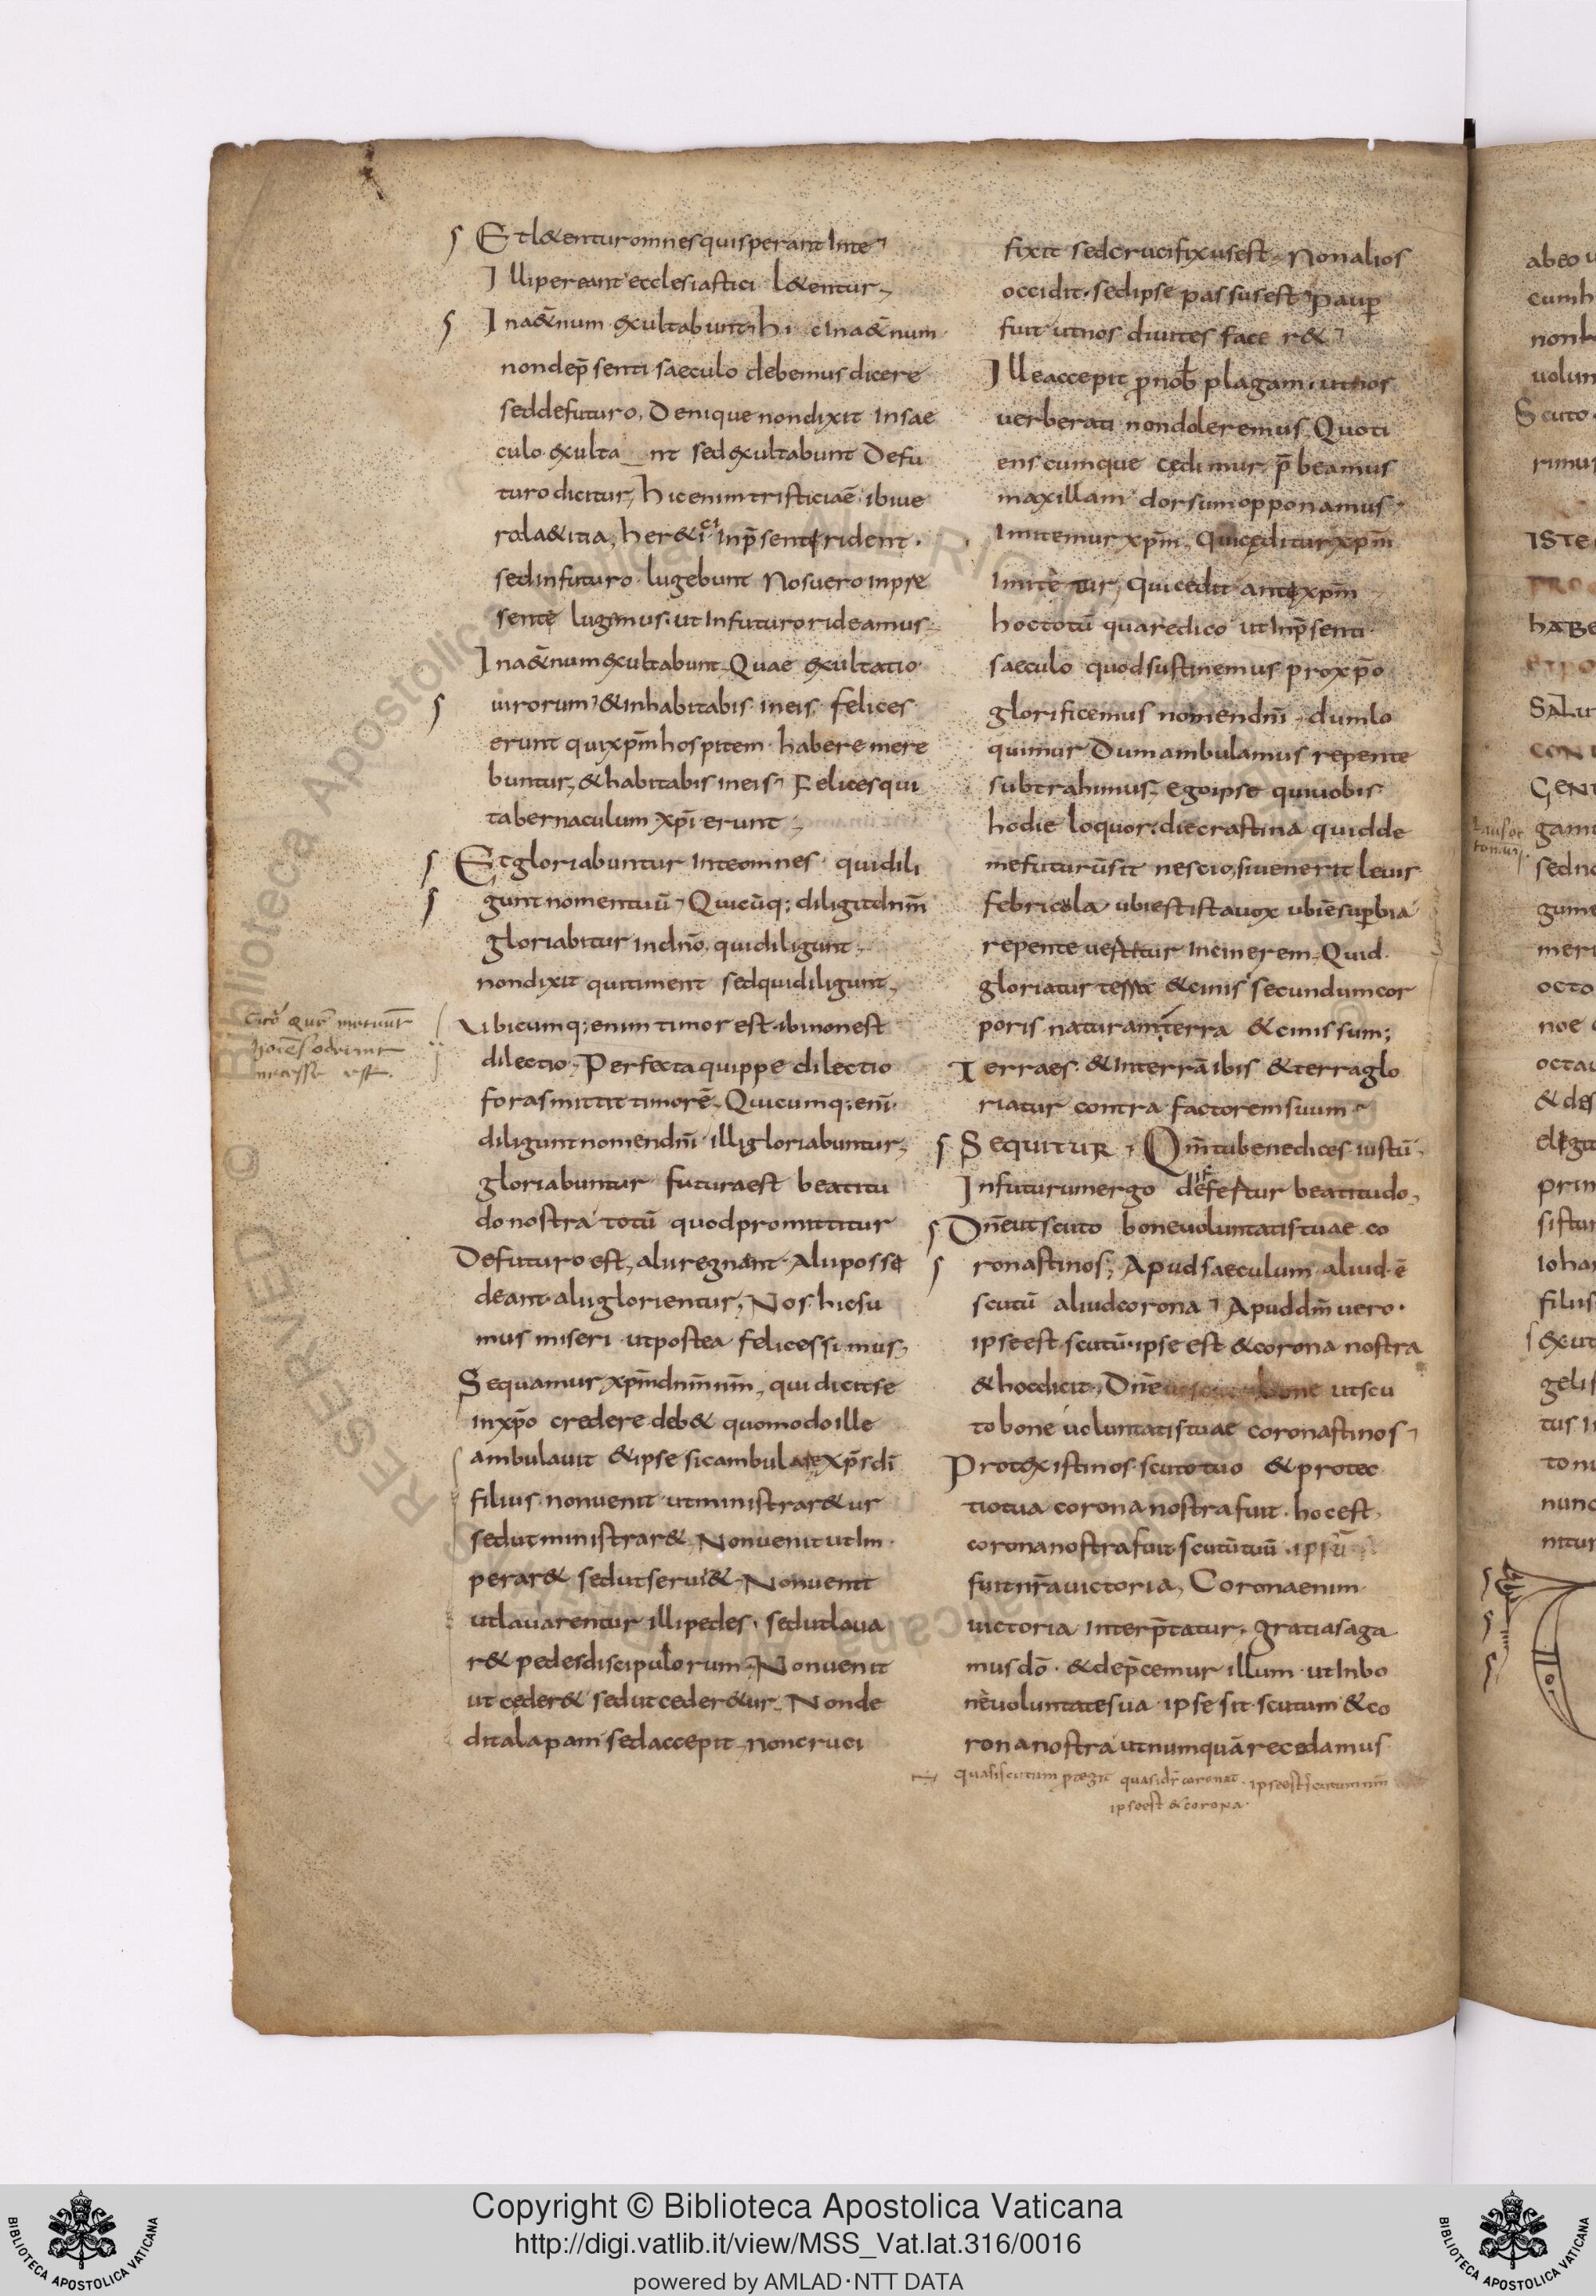 Et l&entur omnes qui sperant In te
Illi pereant ecclesiastici l&entur
In a&̄num exultabunt hic In a&̄num
non de p̄senti saeculo debemus dicere
sed de futuro, Denique non dixit In sae
culo exulta nt sed exultabunt De fu
turo dicitur, hic enim tristicia ē ibi ue
ra la&itia, her&ici In p̄senti rident.
sed In futuro lugebunt Nos uero In pre
sente lugamus ut In futuro rideamus
In a&̄num exultabunt Quae exultatio
uirorum & Inhabitabis In eis felices
erunt qui xp̄m hospitem habere mere
buntur, & habitabis In eis Felices qui
tabernaculum xp̄i erunt
Et gloriabuntur In te omnes qui dili
gunt nomen tuū Quicūq; diligit dn̄m
gloriabitur In dn̄o, qui diligunt
non dixit qui timent sed qui diligunt,
Ubicumq; enim timor est ibi non est
dilectio, Perfecta quippe dilectio
foras mittit timorē, Quicumq; eni
diligunt nomen dn̄i illi gloriabuntur,
gloriabuntur futura est beatitu
do nostra totū quod promittitur
De futuro est, alii regnant Alii posse
deant alii glorientur, Nos hic su
mus miseri ut postea felices simus,
Sequamur xp̄m dn̄m nm̄, qui dicit se
in xp̄o credere deb& quomodo ille
ambulauit & ipse sic ambulare xp̄s dī
filius non uenit ut ministrar&ur
sed ut ministrar& Non uenit ut Im
perar& sed ut serui& Non uenit
ut lauarentur illi pedes sed ut laua
r& pedes discipulorum Non uenit
ut ceder& sed ut ceder&ur Non de
dit alapam sed accepit, non cruci
fixit sed crucifixus est Non alios
occidit sed ipse passus est Paup
fuit ut nos diuites facer&
Ille accepit pro nob plagam ut nos
uerberati non doleremus Quoti
enscumque cedimur, p̄beamus
maxillam dorsum opponamus
Imitemur xp̄m Qui ceditur xp̄m
Imitetur, Qui cedit antexpm̄
hoc totū quare dico ut In p̄senti
saeculo quod sustinemus pro xp̄o
glorificemus nomen dn̄i dum lo
quimur Dum ambulamus repente
subtrahimus, ego ipse qui uobis
hodie loquor die crastina quid de
me futurū sit nescio, si uenerit leuis
febricola ubi est ista uox ubi ē supbia
repente uertitur In cinerem, Quid
gloriatur terra & cinis secundum cor
poris naturam, terra & cinis sum;
Terra es & In terrā ibis & terra glo
riatur contra factorem suum
SEQUITUR Qm̄ tu benedices iustū
In futurum ergo defertur beatitudo,
Dn̄e ut scuto bone uoluntatis tuae co
ronasti nos, Apud saeculum aliud ē
scutū aliud corona Apud dm̄ uero
ipse est scutū ipse est & corona nostra
& hoc dicit, Dn̄e ut scu
to bone uoluntatis tuae coronasti nos
Protexisti nos scuto tuo & protec
tio tua corona nostra fuit hoc est
corona nostra fuit scutū tuū ipsū
fuit nr̄a uictoria, Corona enim
uictoria Interp̄tatur, gratias aga
mus dō & dep̄cemur illum ut In bo
ne uoluntate sua ipse sit scutum & co
rona nostra ut numquā recedamus
ipse est scutum nm̄
ipse est & corona
Copyright © Biblioteca Apostolica Vaticana
http://digi.vatlib.it/view/MSS_Vat.lat.316/0016
powered by AMLAD·NTT DATA
BIBLIOTECA APOSTOLICA VATICANA
BIBLIOTECA APOSTOLICA VATICANA